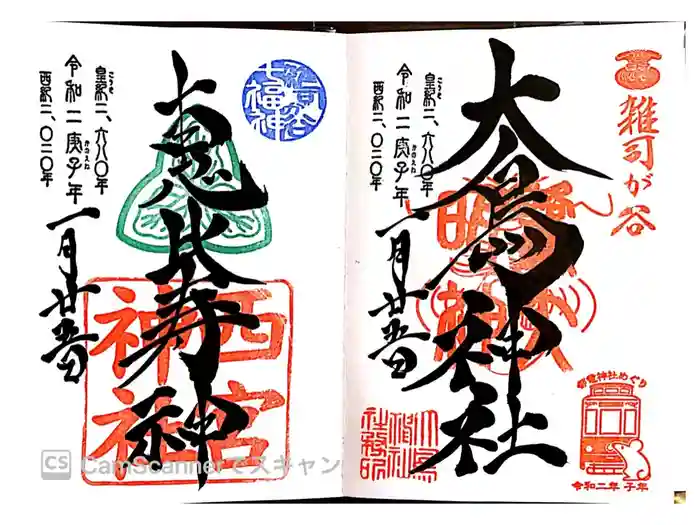 雑司が谷
大鳥神社
皇紀二、六八〇年
こうき
令和二庚子年
かのえね
西紀二、〇二〇年
一月廿五日
大鳥
神社
社務所
都電神社めぐり
令和二年 子年
雑司谷
七福神
恵比寿神
皇紀二、六八〇年
こうき
令和二庚子年
かのえね
西紀二、〇二〇年
一月廿五日
西宮
神社
CS CamScannerでスキャン